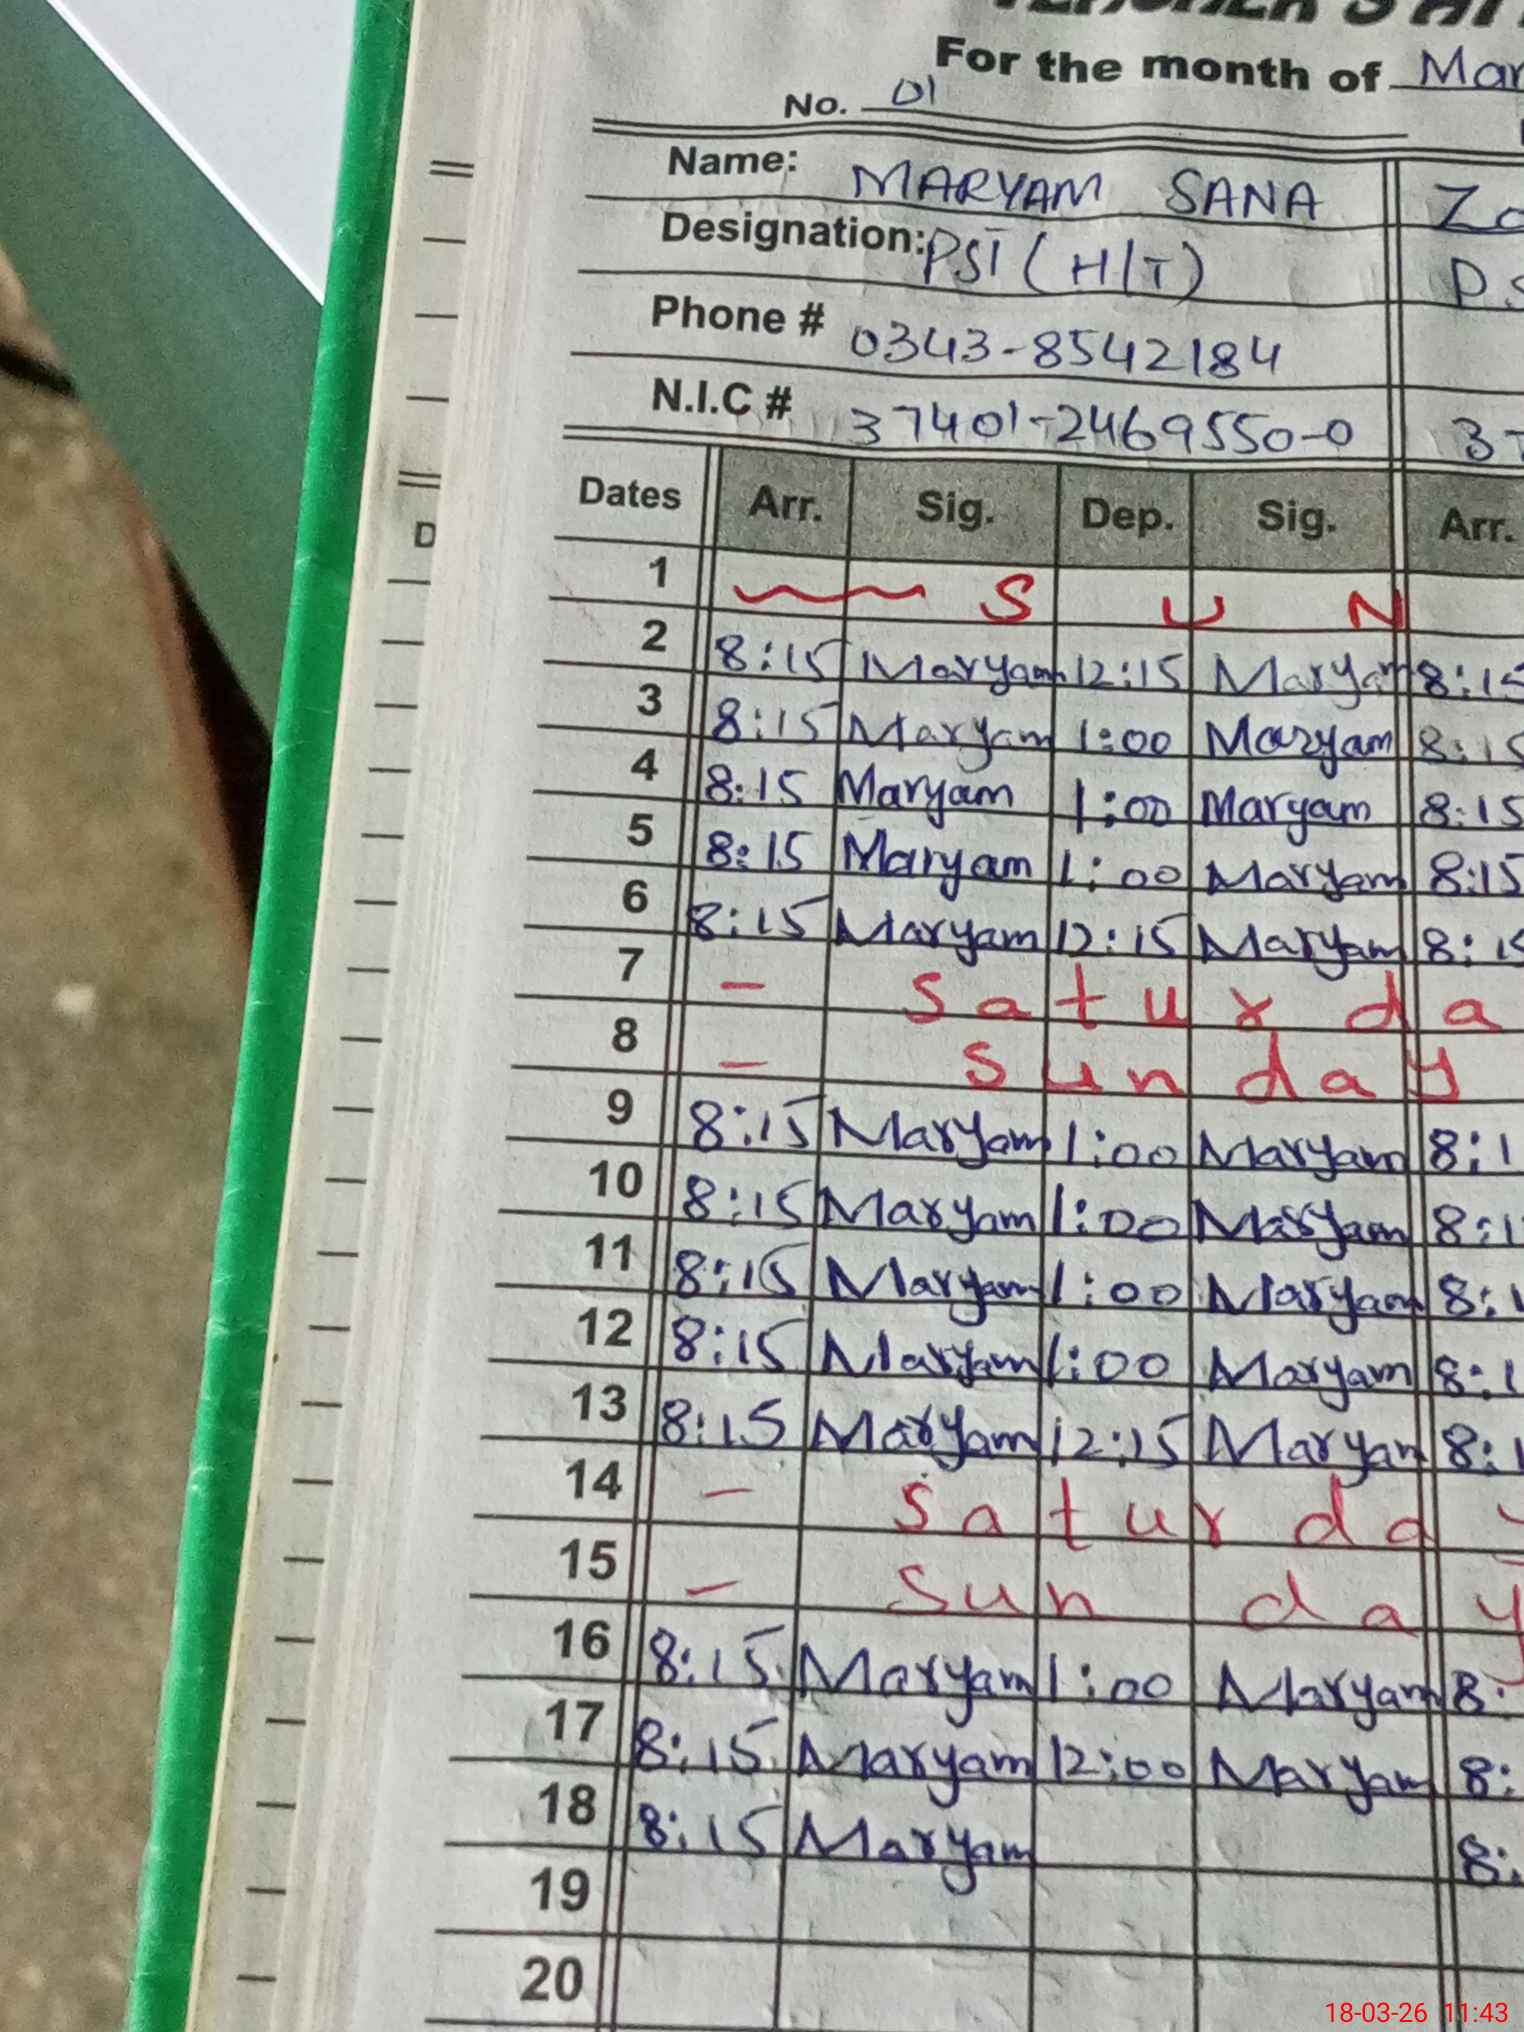 For the month of Mar
No. 01
Name: MARYAM SANA
Designation: PST (H/T)
Phone # 0343-8542184
N.I.C # 37401-2469550-0 37
Dates Arr. Sig. Dep. Sig. Arr.
1 S U N
2 8:15 Maryam 12:15 Maryam 8:15
3 8:15 Maryam 1:00 Maryam 8:15
4 8:15 Maryam 1:00 Maryam 8:15
5 8:15 Maryam 1:00 Maryam 8:15
6 8:15 Maryam 12:15 Maryam 8:15
7 - Saturda
8 - Sunday
9 8:15 Maryam 1:00 Maryam 8:1
10 8:15 Maryam 1:00 Maryam 8:1
11 8:15 Maryam 1:00 Maryam 8:1
12 8:15 Maryam 1:00 Maryam 8:1
13 8:15 Maryam 12:15 Maryam 8:1
14 - Saturday
15 - Sunday
16 8:15 Maryam 1:00 Maryam 8:
17 8:15 Maryam 12:00 Maryam 8:
18 8:15 Maryam 8:
19
20
18-03-26 11:43